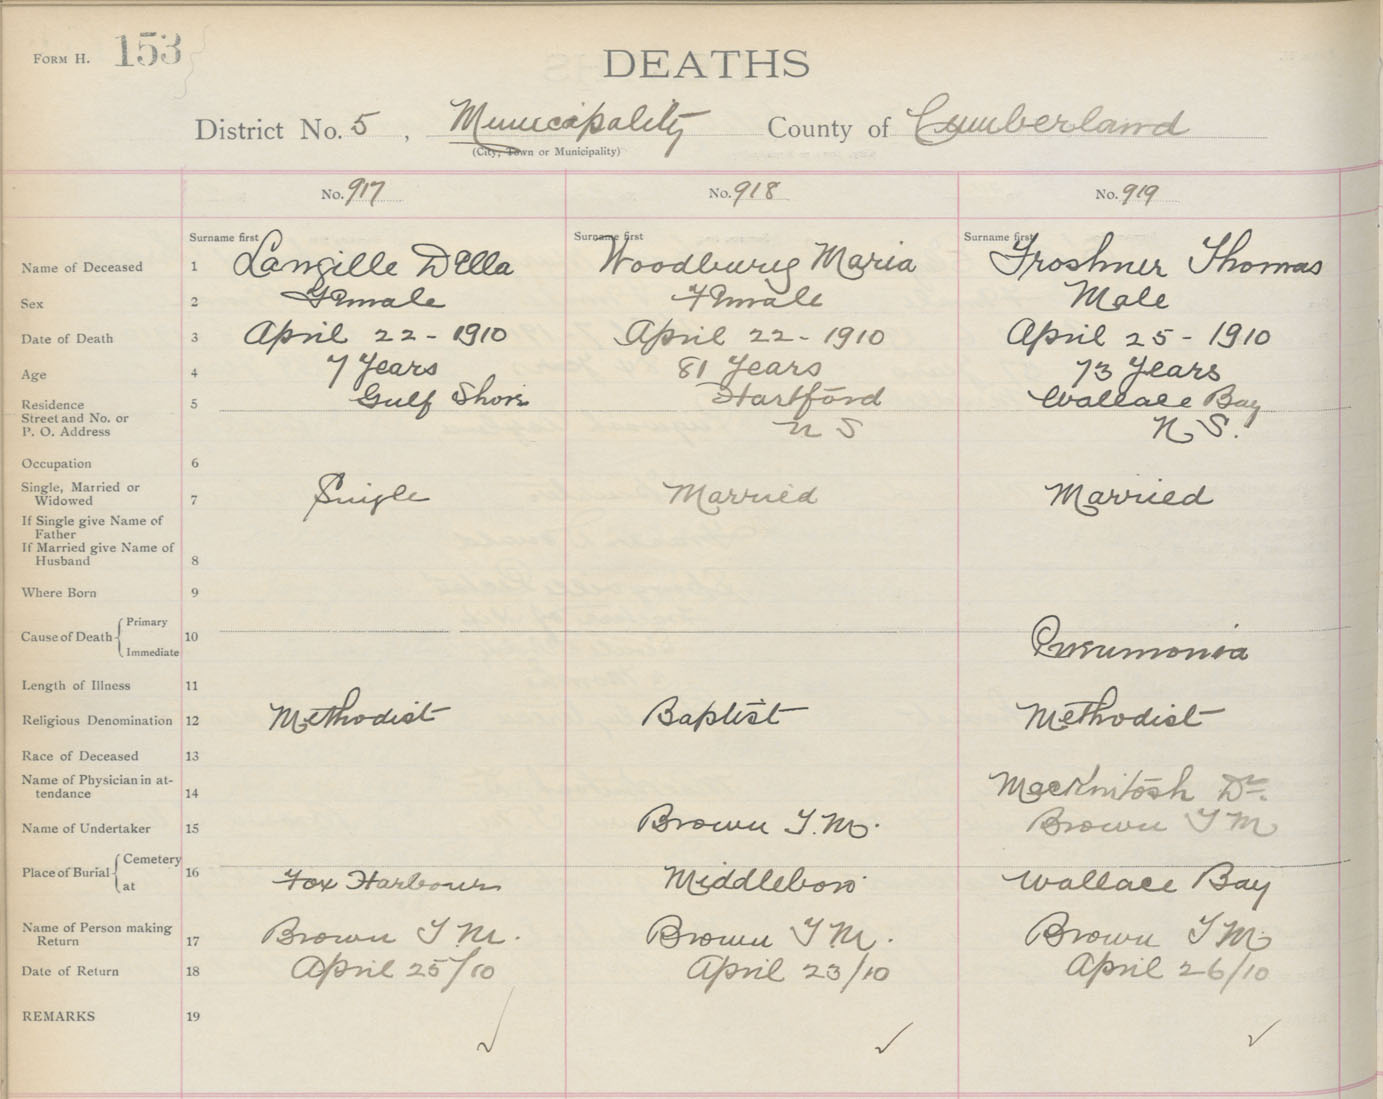 FORM H. 153
DEATHS
District No. 5, Municipality County of Cumberland
(City, Town or Municipality)
No. 917 No. 918 No. 919
Surname first Surname first Surname first
Name of Deceased 1 Langille Della Woodbury Maria Froshner Thomas
Sex 2 Female Female Male
Date of Death 3 April 22 - 1910 April 22 - 1910 April 25 - 1910
Age 4 7 Years 81 Years 73 Years
Residence 5 Gulf Shore Hartford Wallace Bay
Street and No. or
P. O. Address N S N. S.
Occupation 6
Single, Married or
Widowed 7 Single Married Married
If Single give Name of
Father
If Married give Name of
Husband 8
Where Born 9
Cause of Death Primary
10
Immediate Pneumonia
Length of Illness 11
Religious Denomination 12 Methodist Baptist Methodist
Race of Deceased 13
Name of Physician in at-
tendance 14 MacKnitosh Dr.
Name of Undertaker 15 Brown T. M. Brown T M
Place of Burial Cemetery
16
at Fox Harbour Middleboro Wallace Bay
Name of Person making
Return 17 Brown T. M. Brown T M. Brown T M
Date of Return 18 April 25/10 April 23/10 April 26/10
REMARKS 19